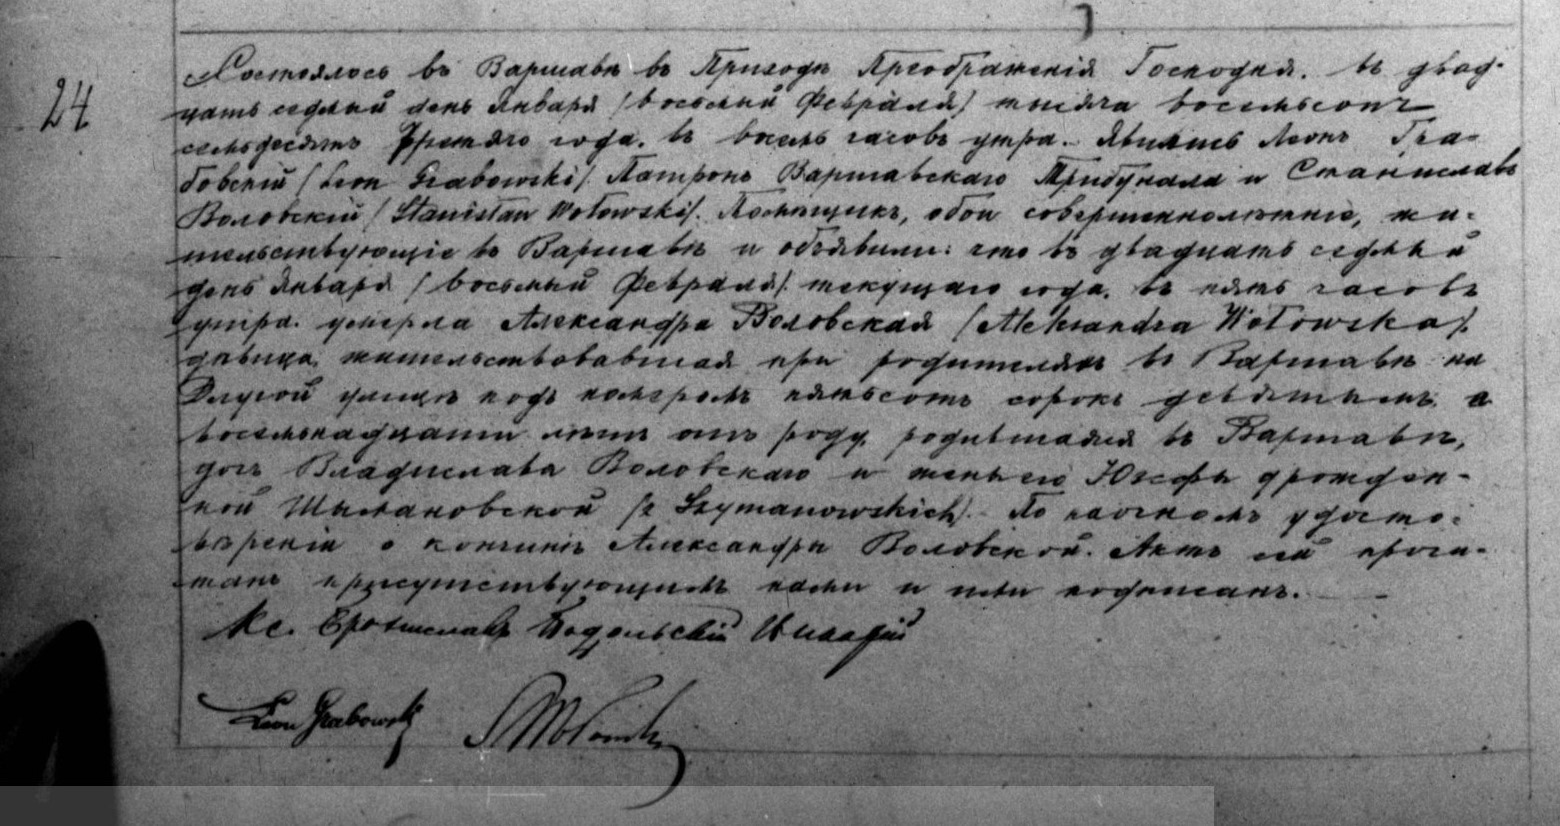 24
Состоялось въ Варшавѣ въ Приходѣ Преображенія Господня. въ двад-
цать седмый день Января /восьмый Февраля/ тысяча восемьсотъ
семьдесятъ Третяго года. въ восемь часовъ утра. Явились Леонъ Гра-
бовскій /Leon Grabowski/. Патронъ Варшавскаго Трибунала и Станиславъ
Воловскій /Stanisław Wołowski/. Помѣщикъ, оба совершеннолѣтніе, жи-
тельствующіе въ Варшавѣ и объявили: что въ двадцать седмый
день Января /восьмый Февраля/. текущаго года. въ пять часовъ
утра. умерла Александра Воловская /Aleksandra Wołowska/.
дѣвица, жительствовавшая при родителяхъ въ Варшавѣ на
Длугой улицѣ подъ номеромъ пятьсотъ сорокъ девятымъ, а
восемьнадцати лѣтъ отъ роду, родившаяся въ Варшавѣ,
дочь Владислава Воловскаго и жены его Юзефы урожден-
ной Шимановской /z Szymanowskich/. По наочномъ удосто-
вѣреніи о кончинѣ Александры Воловской. Актъ сей прочи-
танъ присутствующимъ нами и ими подписанъ.
Кс. Подольскій
Leon Grabowski
S Wołowski